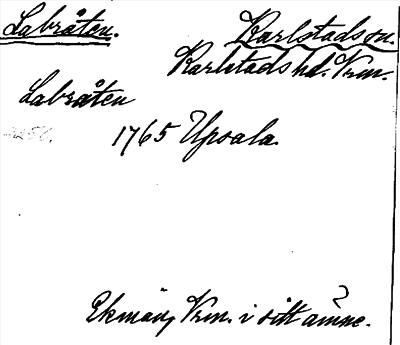 Labråten.
Karlstads sn.
Karlstads hd. Vrm.
Labråten
1765 Upsala.
Ekman, Vrm. i sitt ämne.